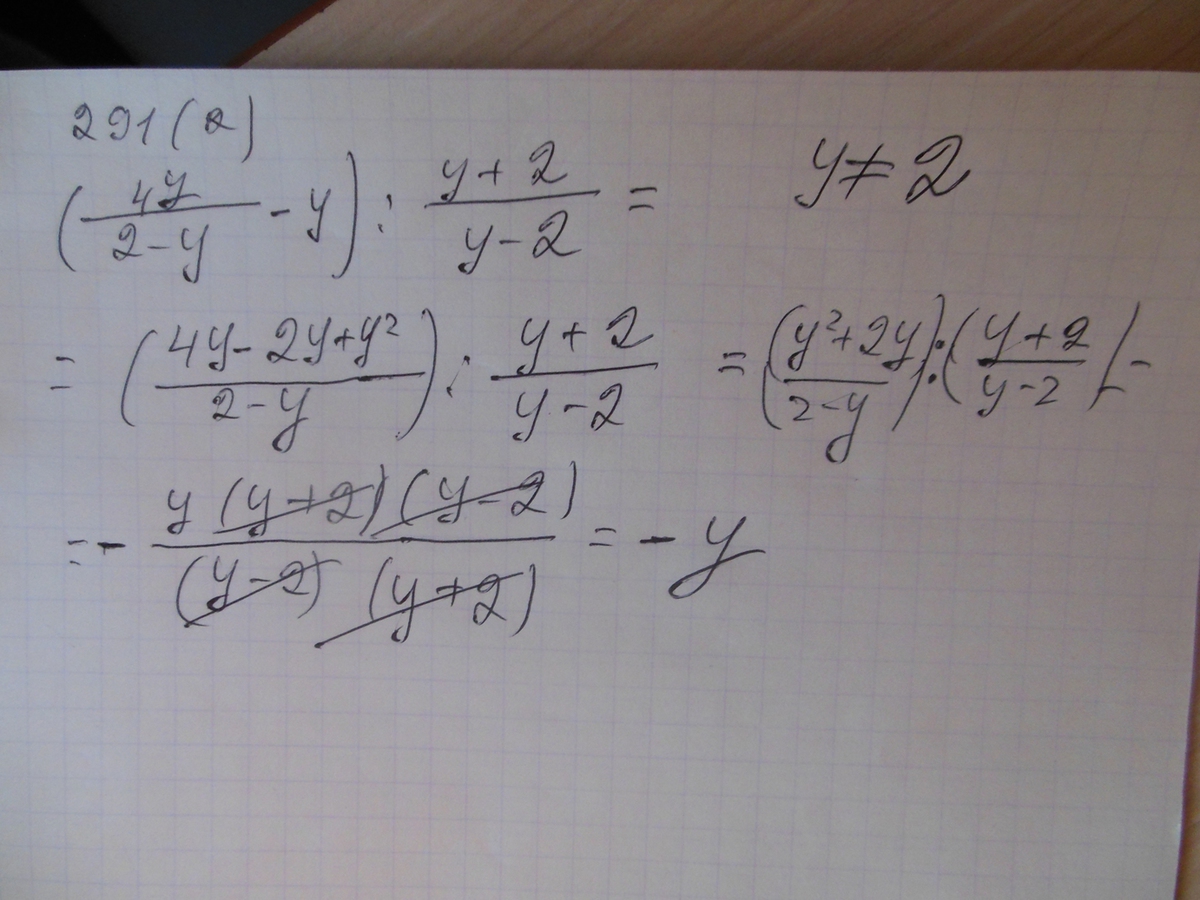 291(2)
(4y/(2-y) - y) : (y+2)/(y-2) = y≠2
= ((4y-2y+y²)/(2-y)) : (y+2)/(y-2) = ((y²+2y)/(2-y)) : ((y+2)/(y-2)) -
= - (y(y+2)(y-2))/((y-2)(y+2)) = - y